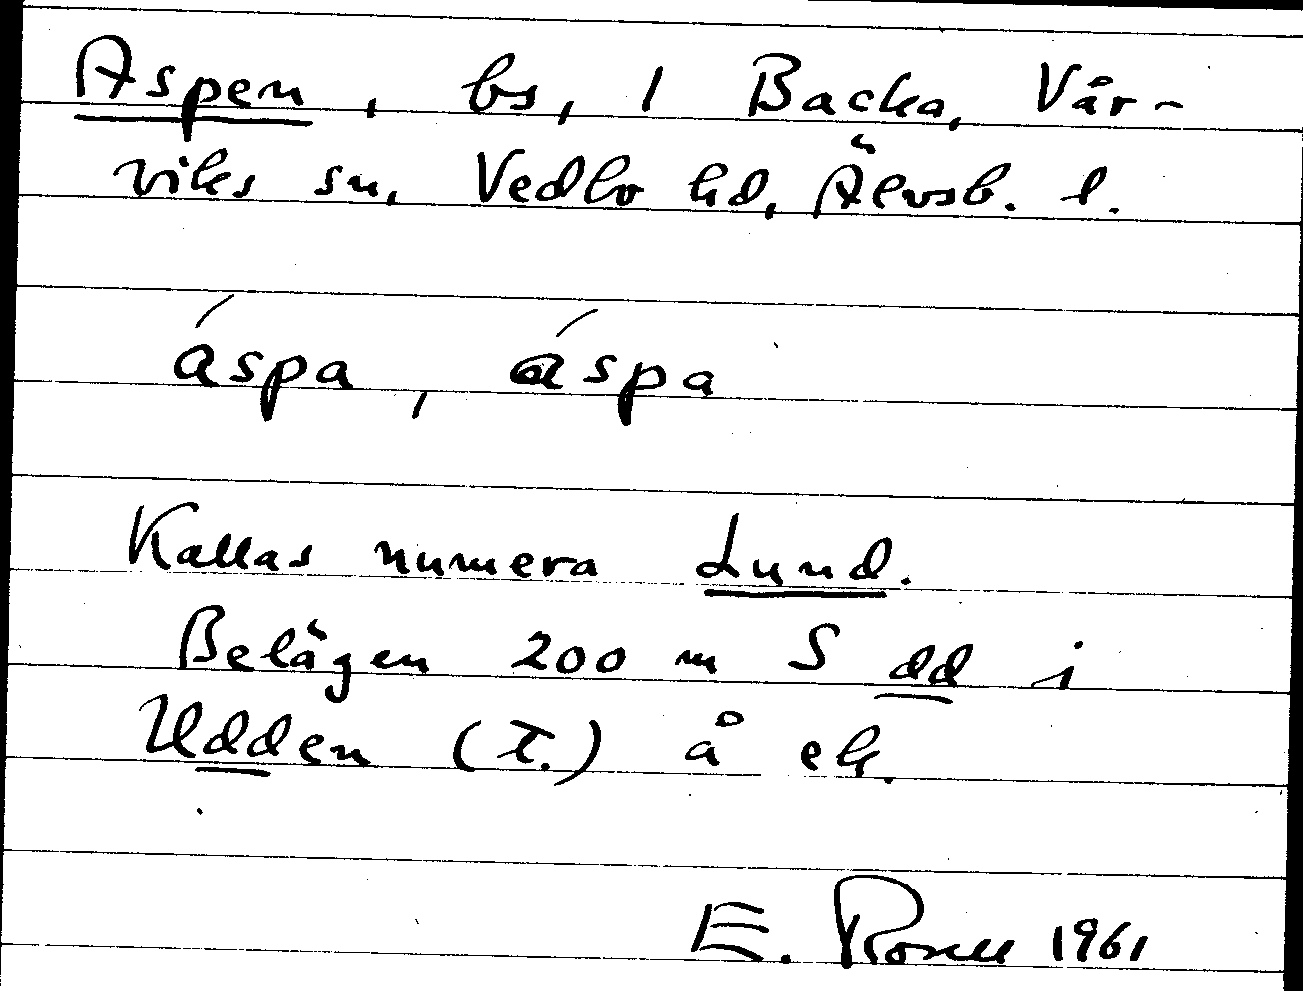 Aspen, bs, 1 Backa, Vår-
viks sn, Vedbo hd, Älvsb. l.
áspa, áspa
Kallas numera Lund.
Belägen 200 m S dd i
Udden (t.) å ek.
E. Rosell 1961